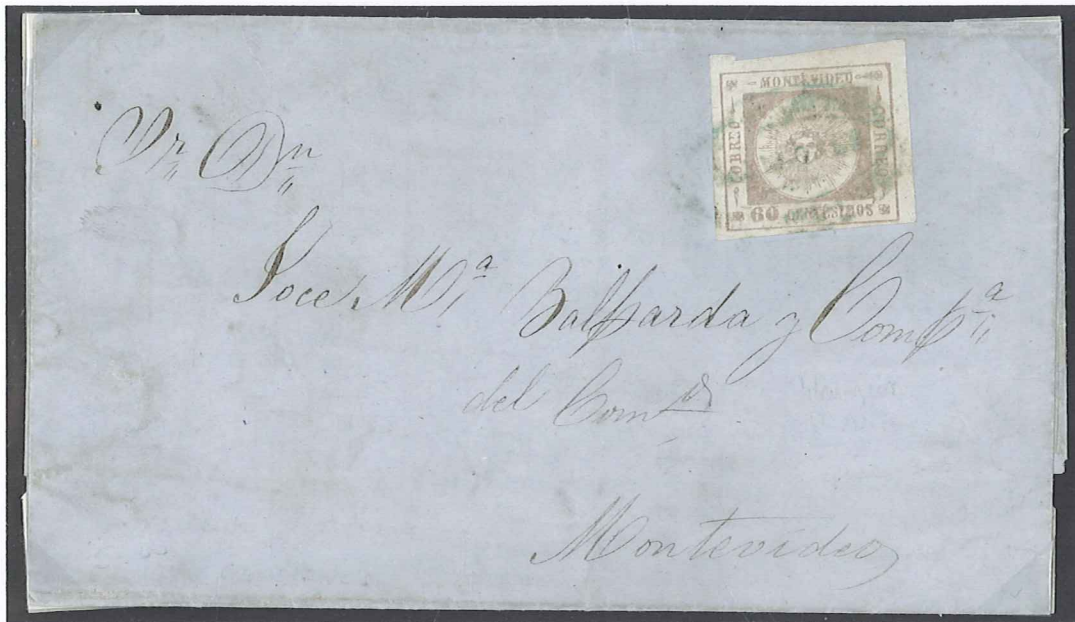 MONTEVIDEO
CORREO
CORREO
60 CENTESIMOS
Sr. Dn.
Joce Ma. Balparda y Compa.
del Com
Montevideo